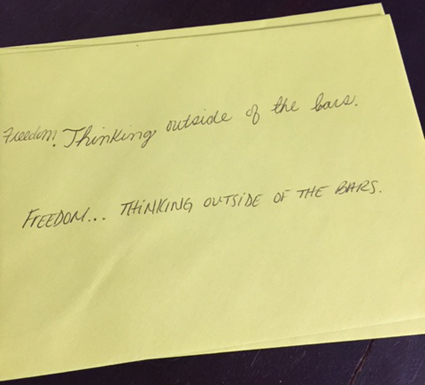 Freedom! Thinking outside of the bars.
FREEDOM... THiNKiNG OUTSiDE OF THE BARS.